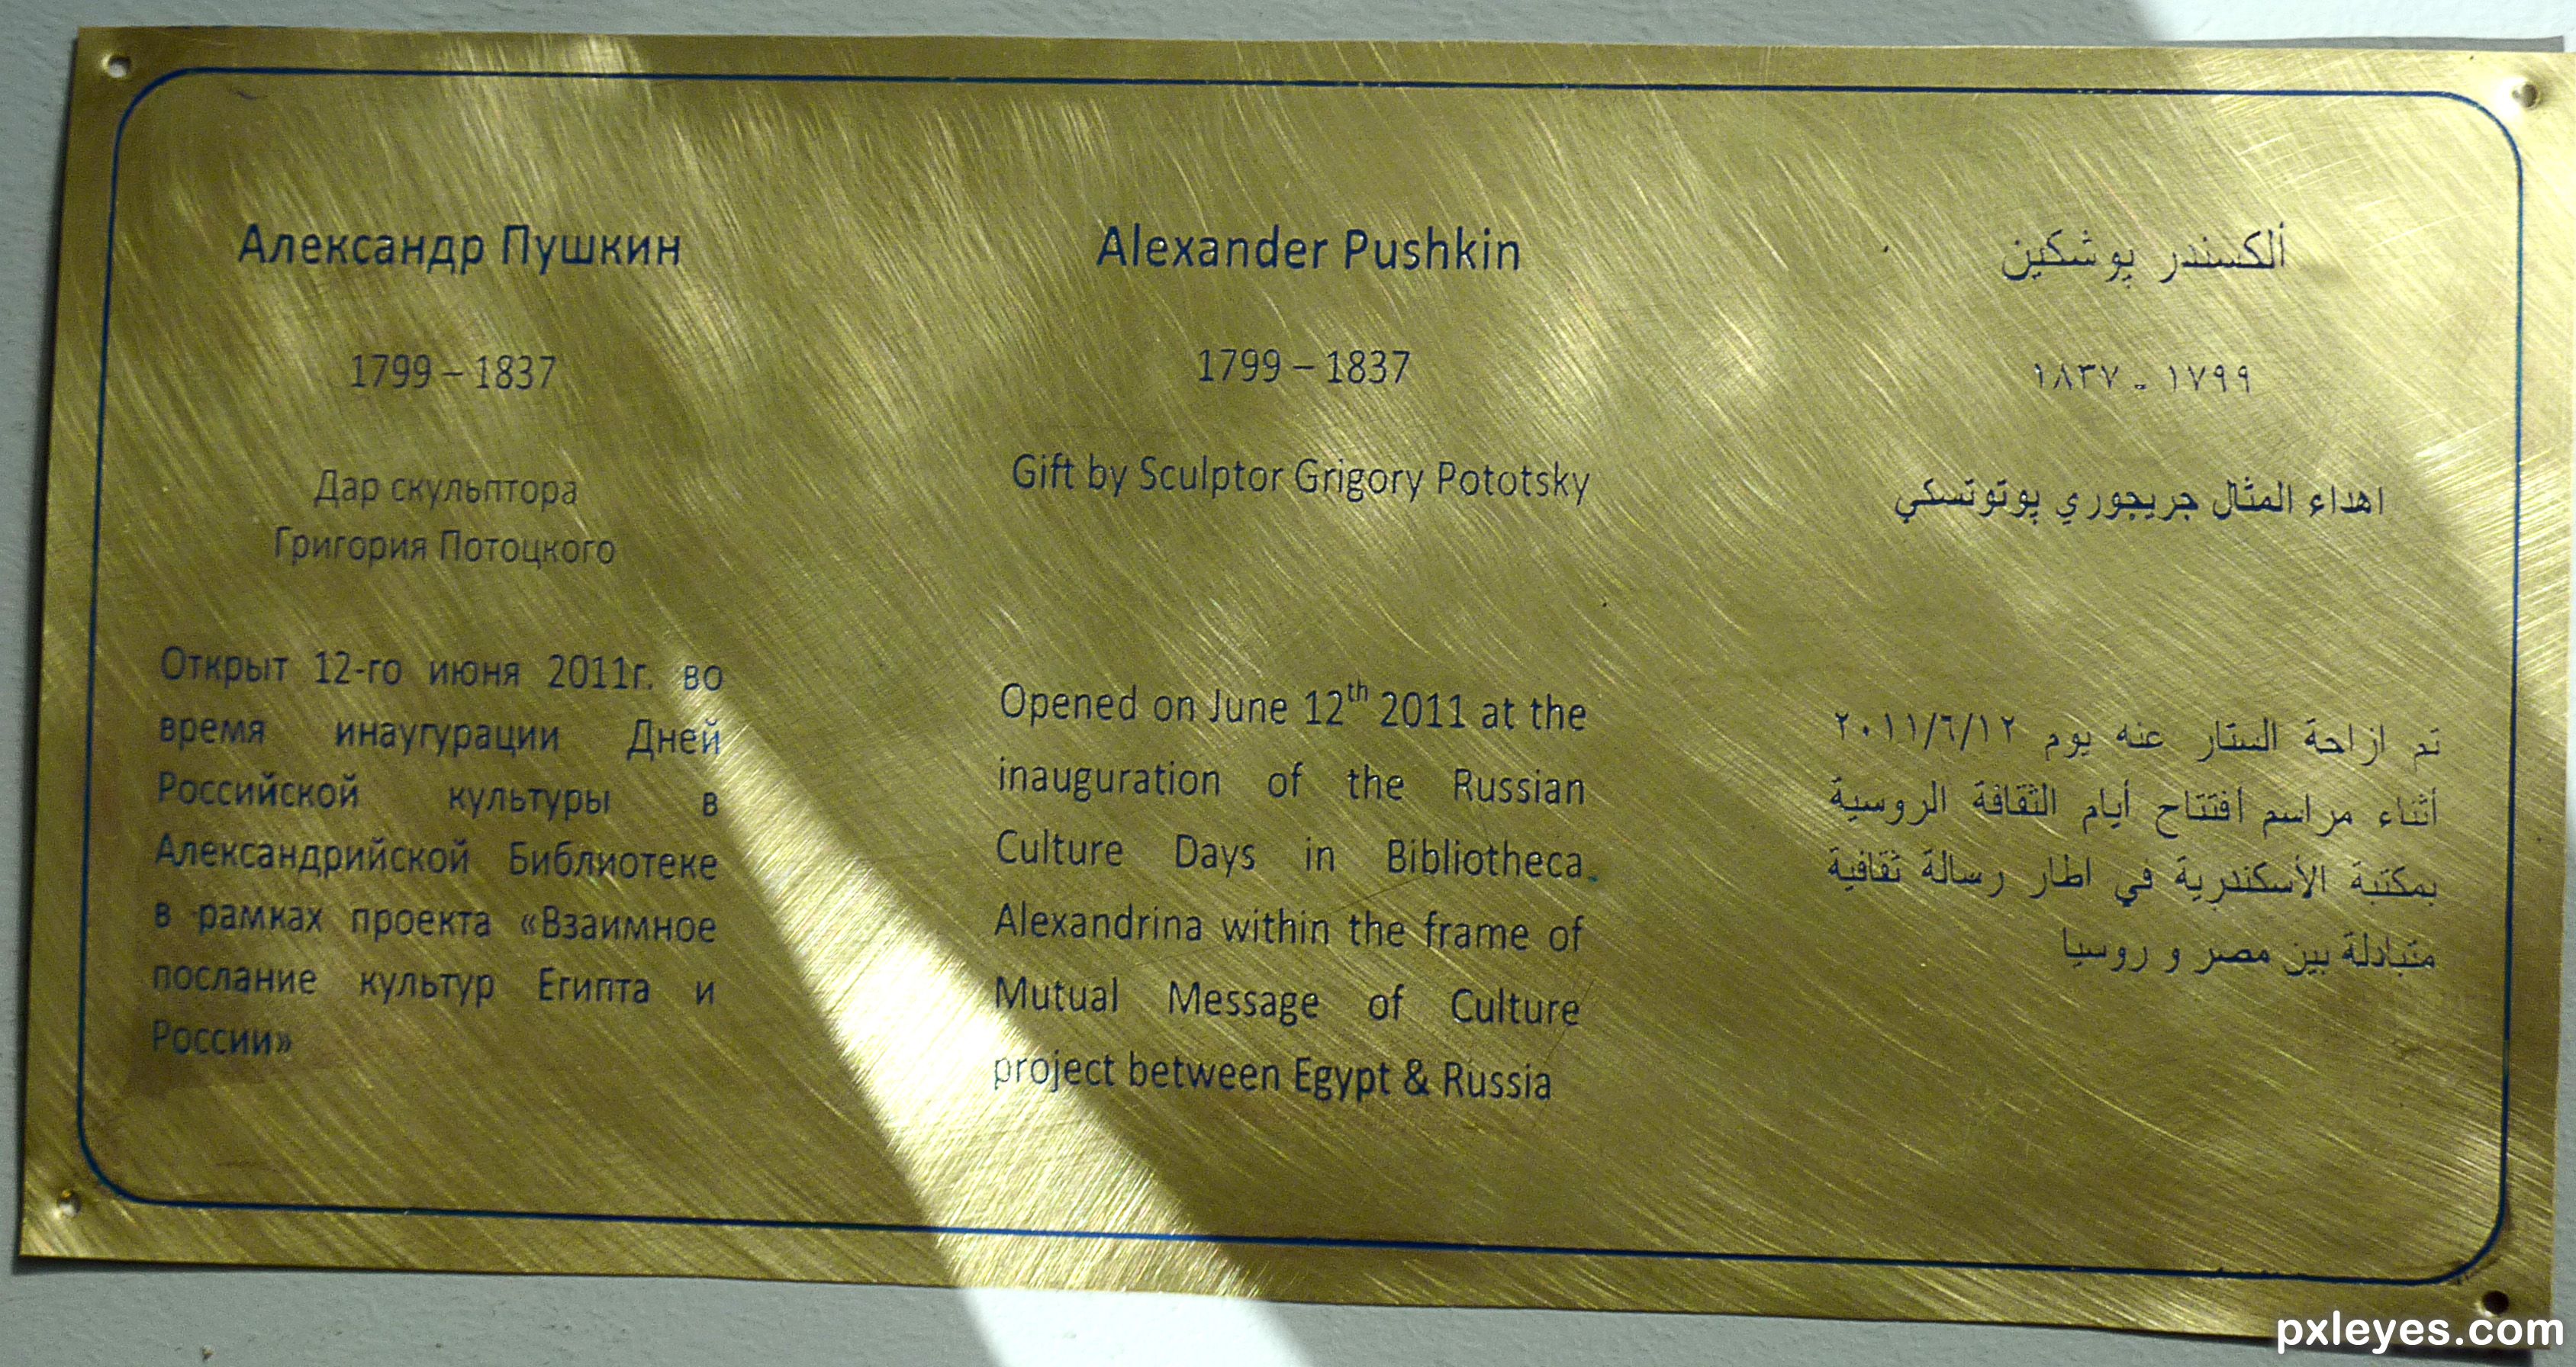 Александр Пушкин
1799 – 1837
Дар скульптора
Григория Потоцкого
Открыт 12-го июня 2011г. во
время инаугурации Дней
Российской культуры в
Александрийской Библиотеке
в рамках проекта «Взаимное
послание культур Египта и
России»
Alexander Pushkin
1799 – 1837
Gift by Sculptor Grigory Pototsky
Opened on June 12th 2011 at the
inauguration of the Russian
Culture Days in Bibliotheca
Alexandrina within the frame of
Mutual Message of Culture
project between Egypt & Russia
ألكسندر پوشكين
١٧٩٩ - ١٨٣٧
اهداء المثال جريجوري پوتوتسكي
تم ازاحة الستار عنه يوم ٢٠١١/٦/١٢
أثناء مراسم أفتتاح أيام الثقافة الروسية
بمكتبة الأسكندرية في اطار رسالة ثقافية
متبادلة بين مصر و روسيا
pxleyes.com